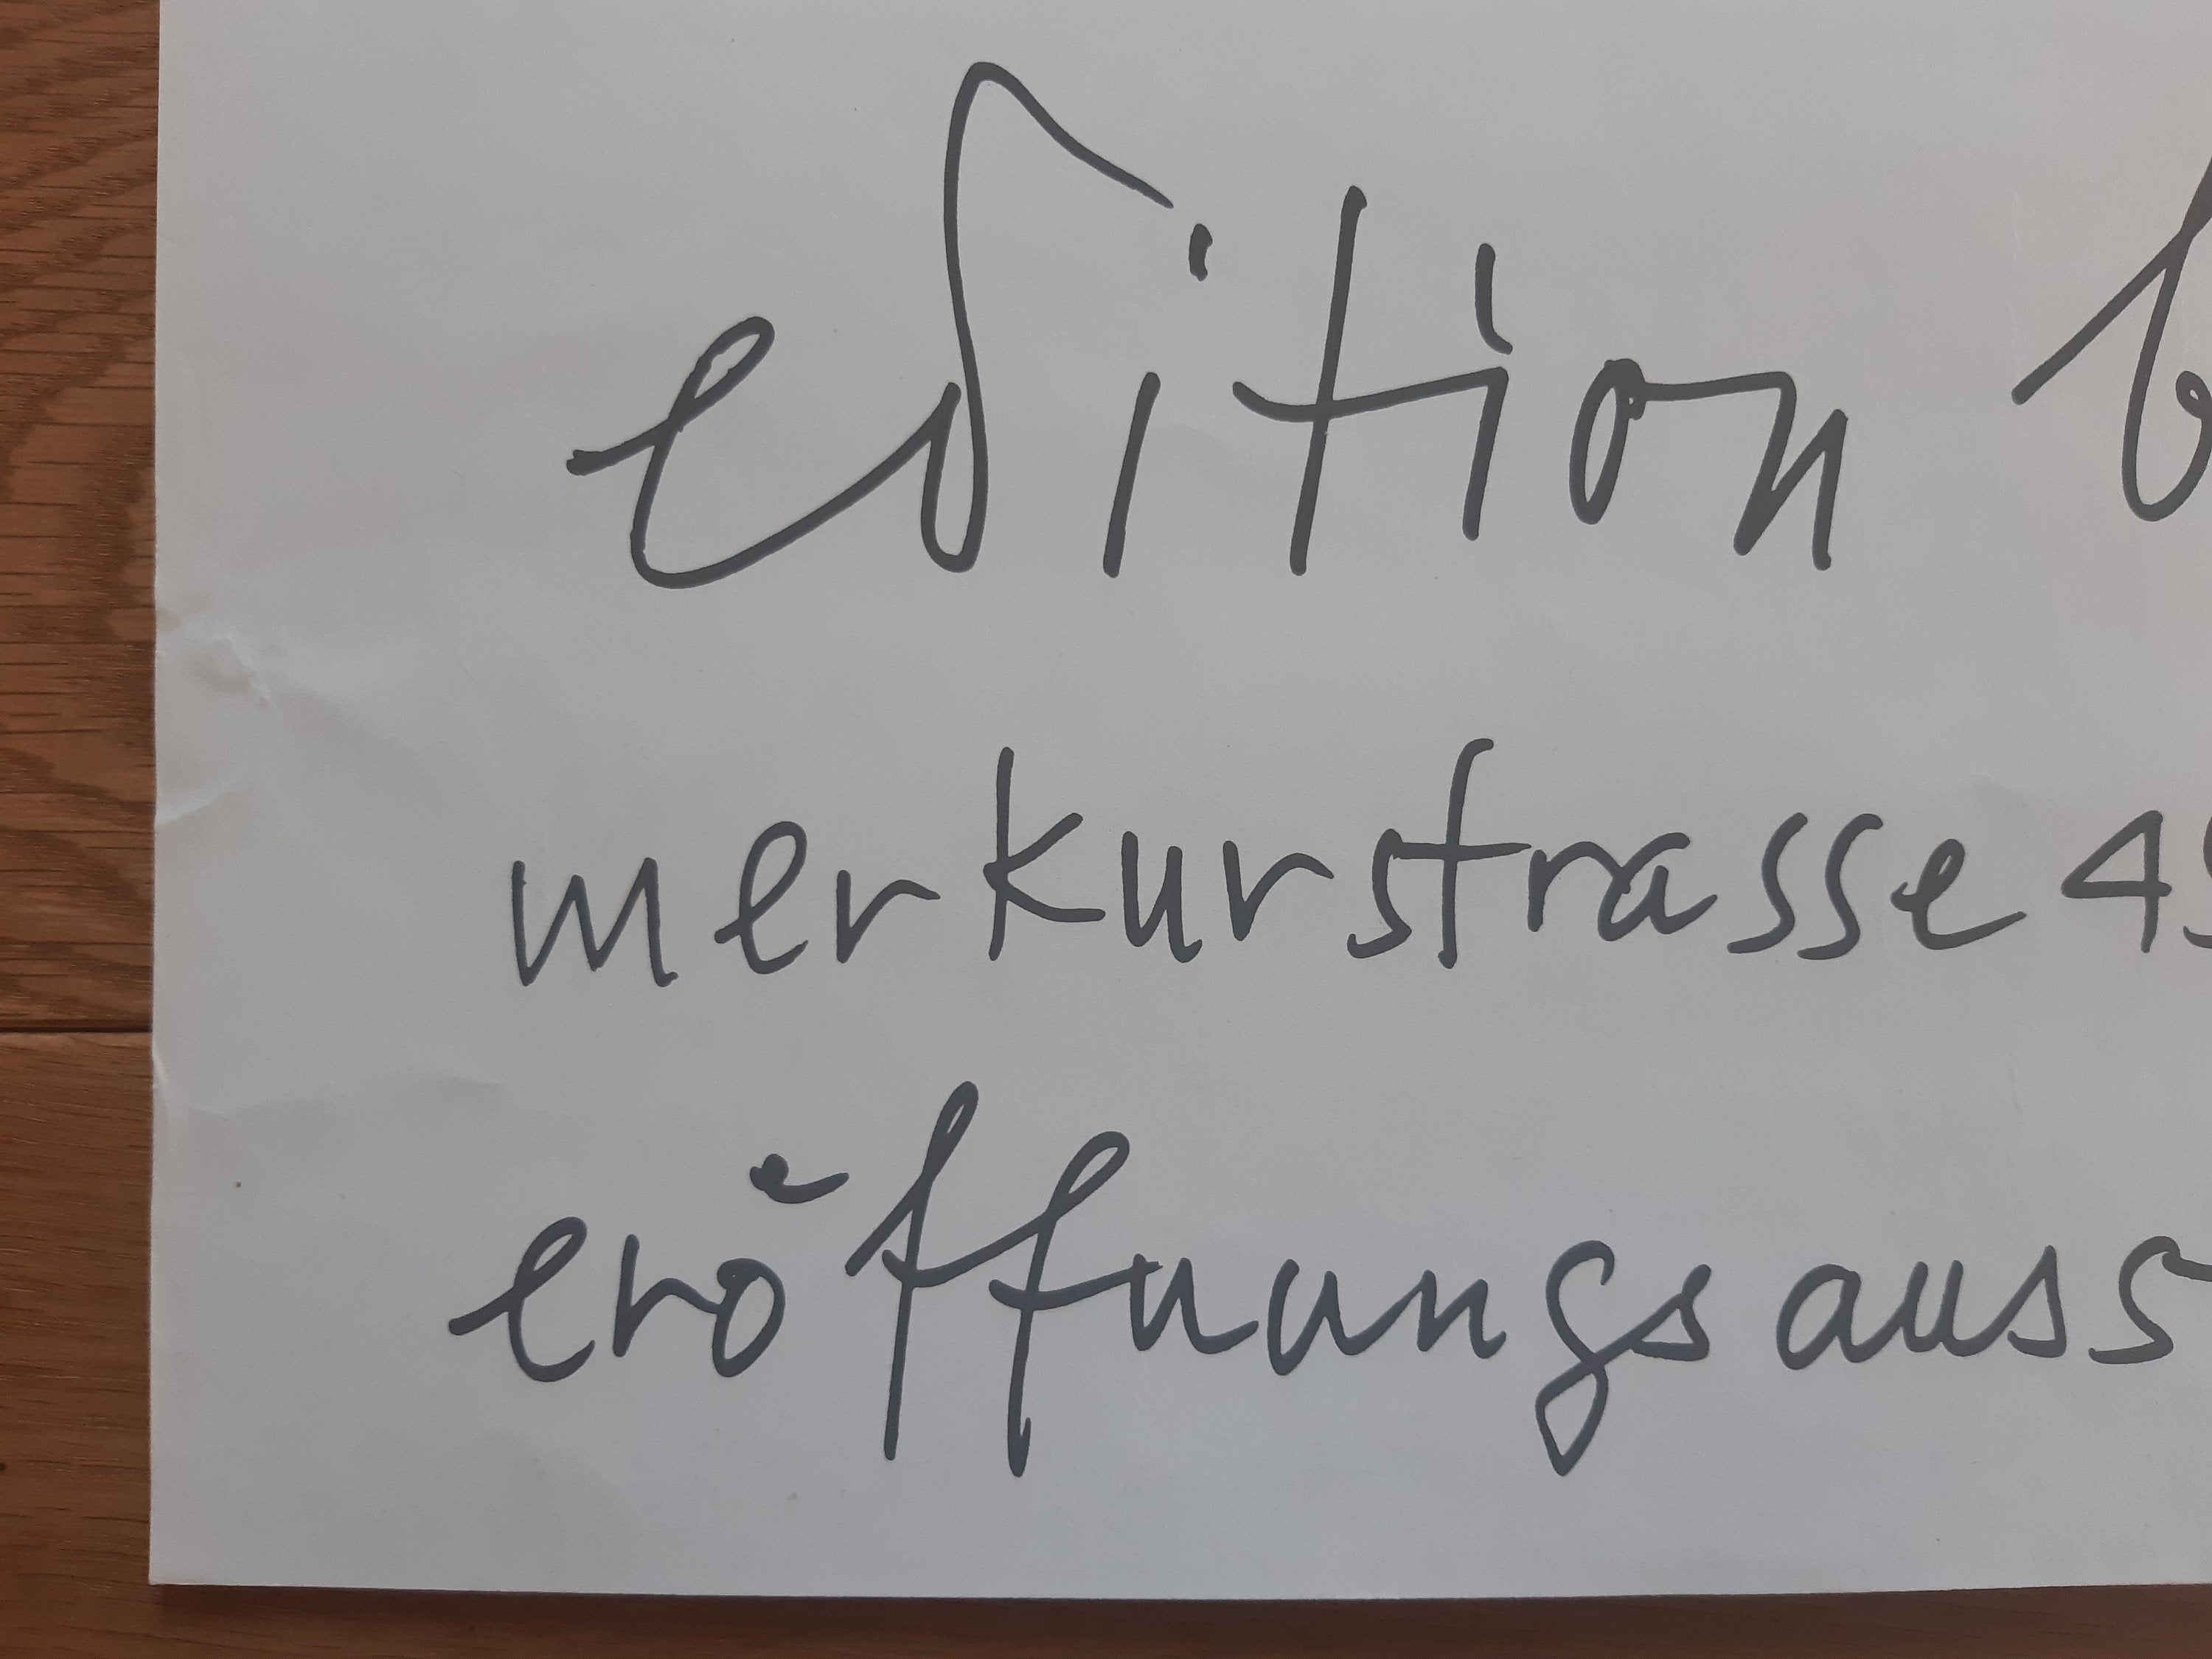 edition b
merkurstrasse 4
eröffnungsauss